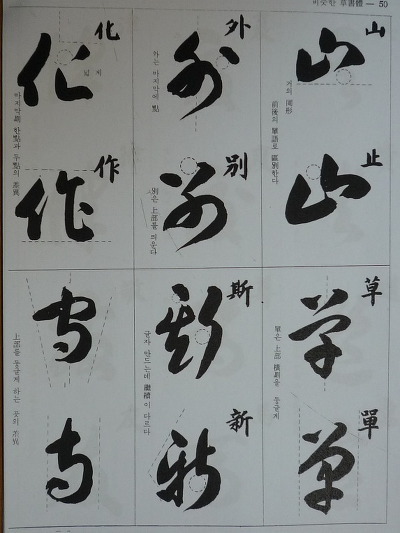 비슷한 草書體 — 59
山
거의 同形
前後의 單語로 區別한다
止
外
外는 마지막에 點
別
別은 上部를 띄운다
化
마지막劃 한點과 두點의 差異
作
草
單
單은 上部 橫劃을 둥글게
斯
글자 만드는데 繼續이 다르다
新
上部를 둥글게 하는 것의 差異